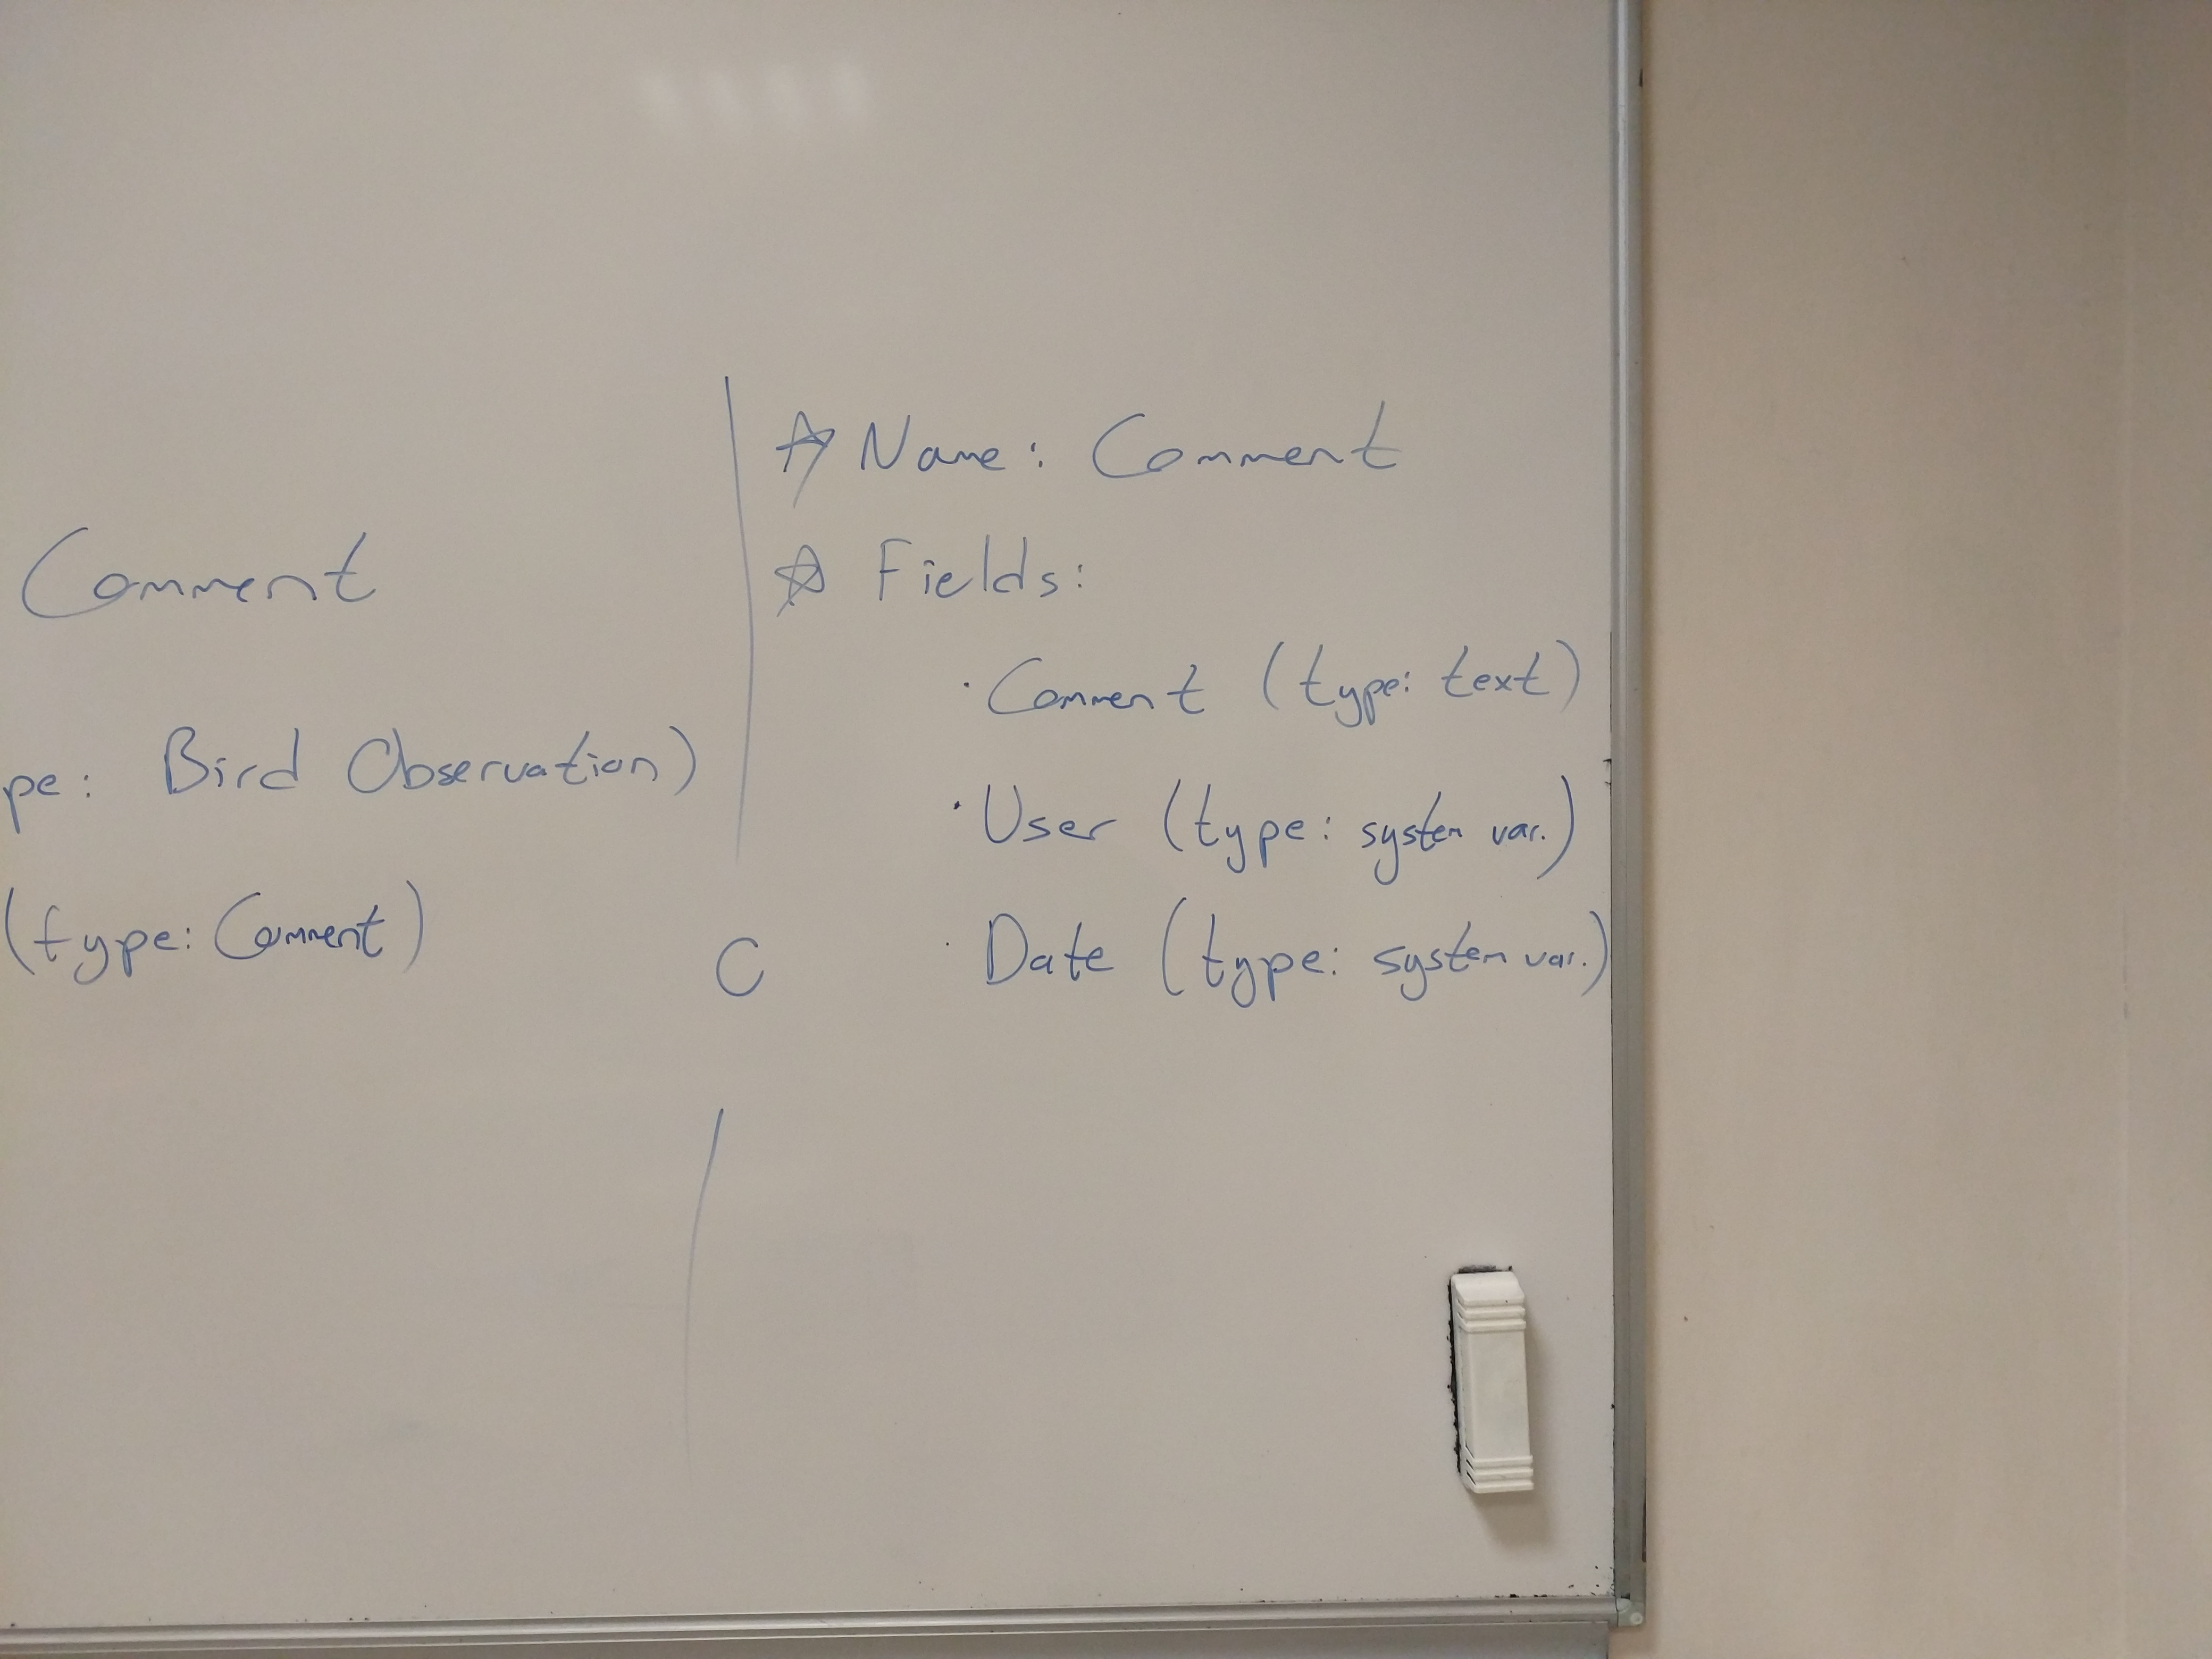 Comment
pe: Bird Observation)
(type: Comment)
C
☆ Name: Comment
☆ Fields:
· Comment (type: text)
· User (type: system var.)
· Date (type: system var.)